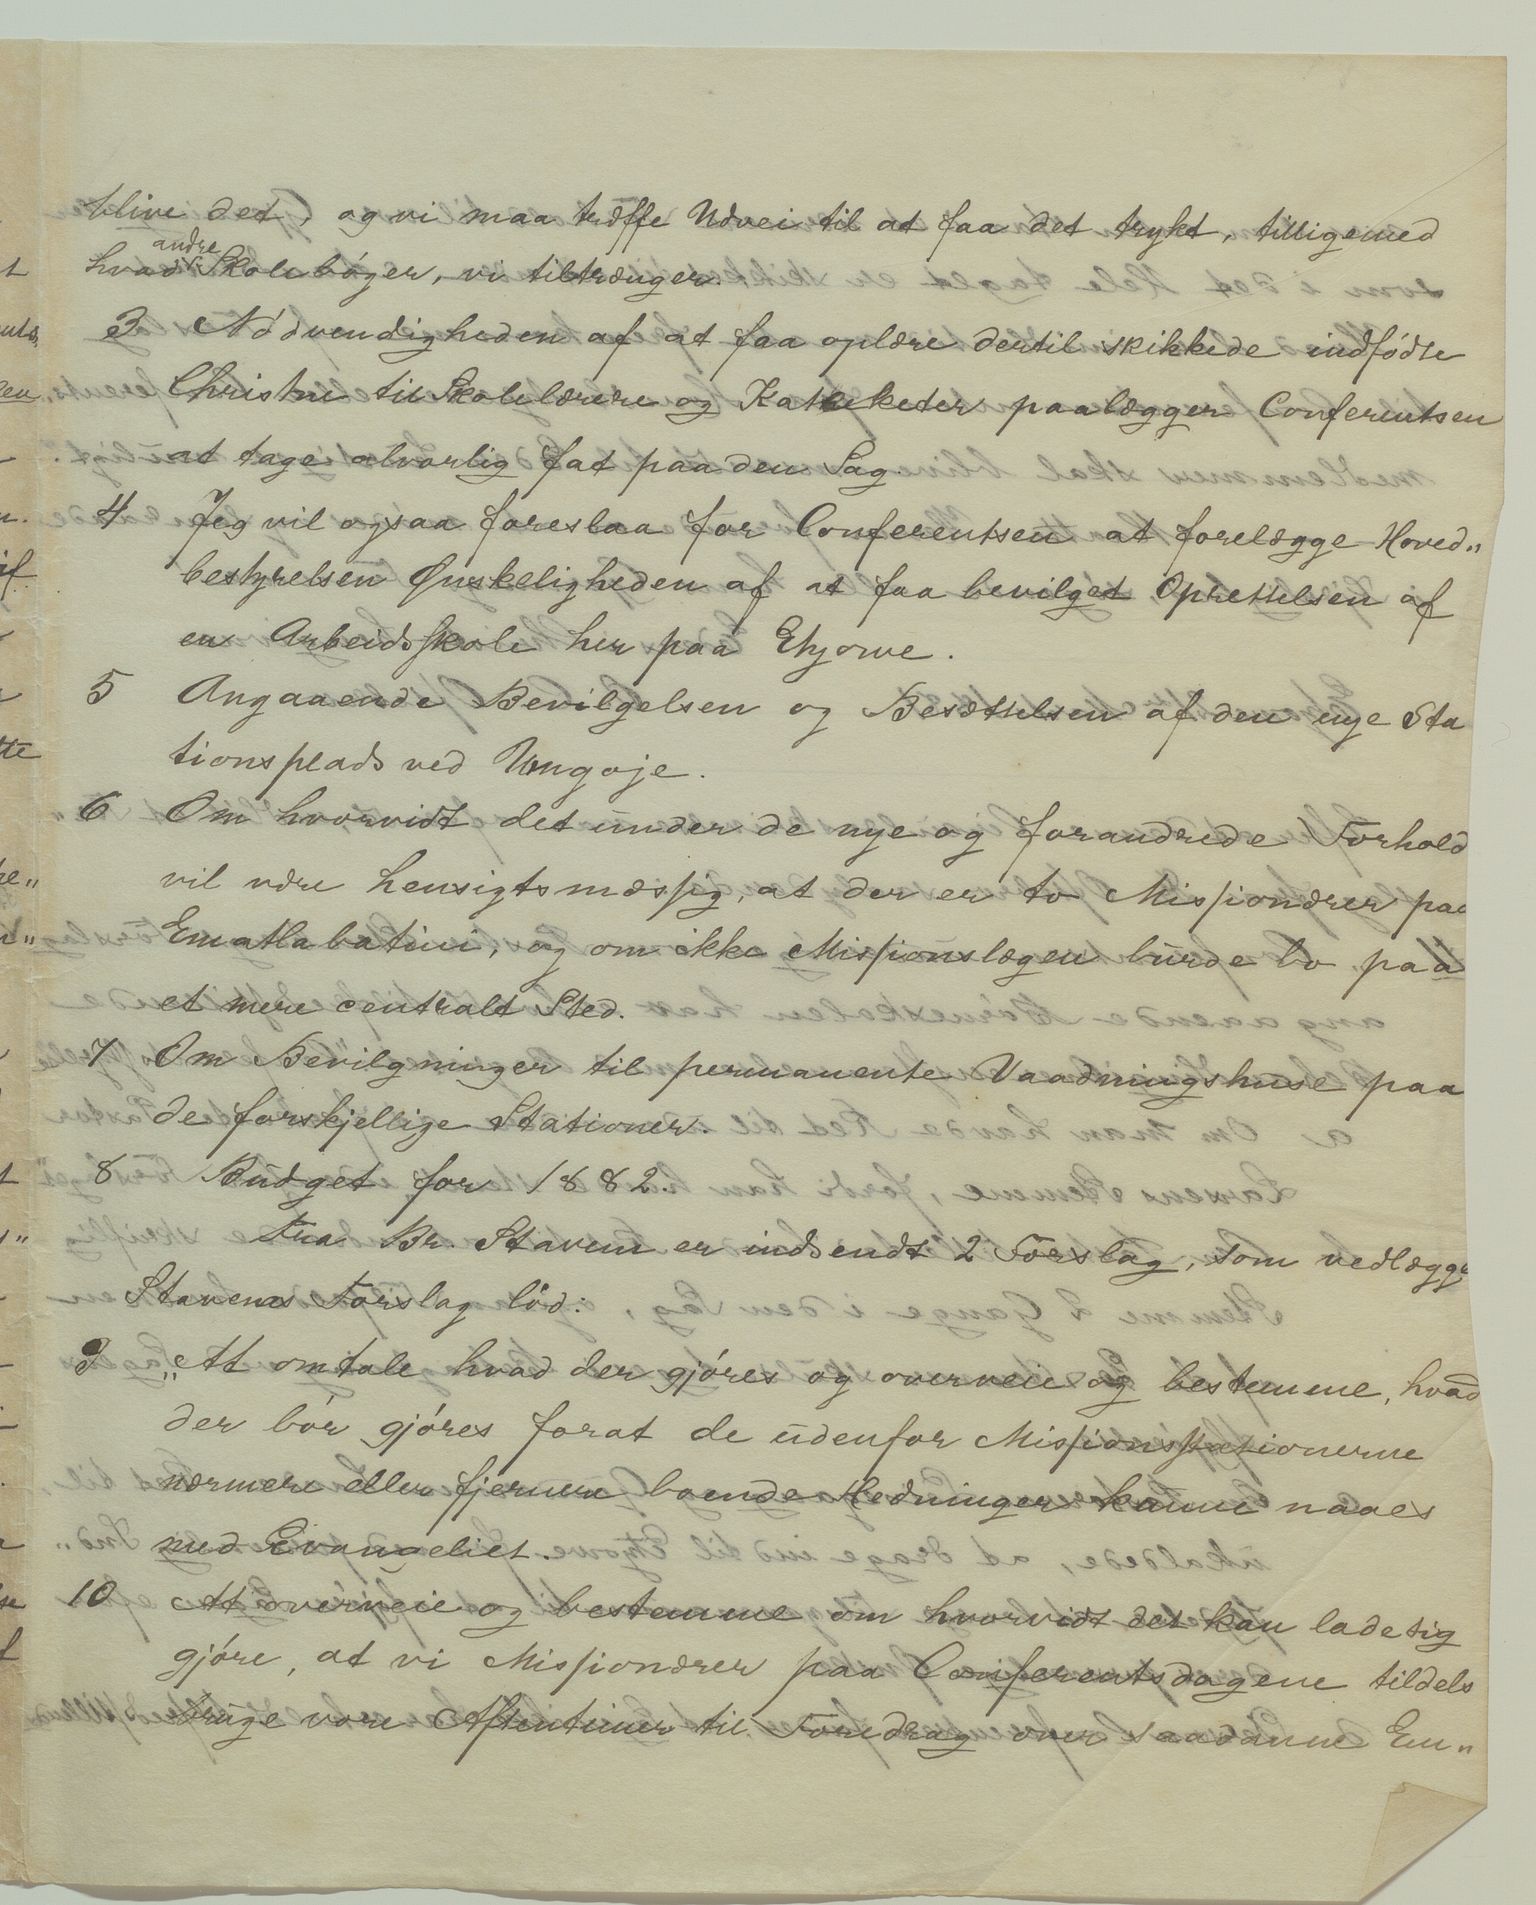 blive det, og vi maa træffe Udvei til at faa det trykt, tilligemed
hvad andre Skolebøger, vi tiltrænger.
3 Nødvendigheden af at faa oplære dertil skikkede indfødte
Christne til Skolelærere og Katheketer paalægger Conferentsen
at tage alvorlig fat paa den Sag.
4 Jeg vil ogsaa foreslaa for Conferentsen at forelægge Hoved„
bestyrelsen Ønskeligheden af at faa bevilget Oprettelsen af
en Arbeidsskole her paa Ekjowe.
5 Angaaende Bevilgelsen og Besættelsen af den nye Sta
tionsplads ved Ungoje.
6 Om hvorvidt det under de nye og forandrede Forhold
vil være hensigtsmæssig, at der er to Missionærer paa
Ematlabatini, og om ikke Missionslægen burde bo paa
et mere centralt Sted.
7 Om Bevilgninger til permanente Vaadningshuse paa
de forskjellige Stationer.
8 Budget for 1882.
Fra Br. Stavem er indsendt 2 Forslag, som vedlægges
Stavems Forslag lød:
9 „At omtale hvad der gjøres og overveie og bestemme, hvad
der bør gjøres forat de udenfor Missionsstationerne
nærmere eller fjernere boende Hedninger kunne naaes
med Evangeliet.
10 At overveie og bestemme om hvorvidt det kan lade sig
gjøre, at vi Missionærer paa Conferentsdagene tildels
bruge vore Aftentimer til Foredrag over saadanne Em„